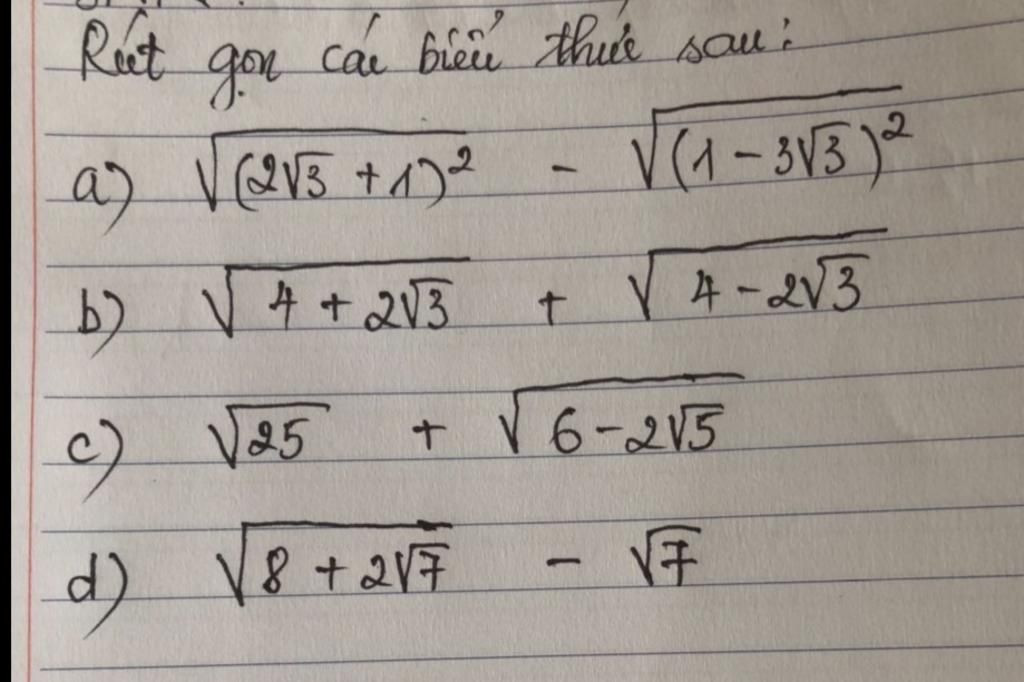 Rút gọn các biểu thức sau:
a) √(2√3 + 1)² - √(1 - 3√3)²
b) √4 + 2√3 + √4 - 2√3
c) √25 + √6 - 2√5
d) √8 + 2√7 - √7